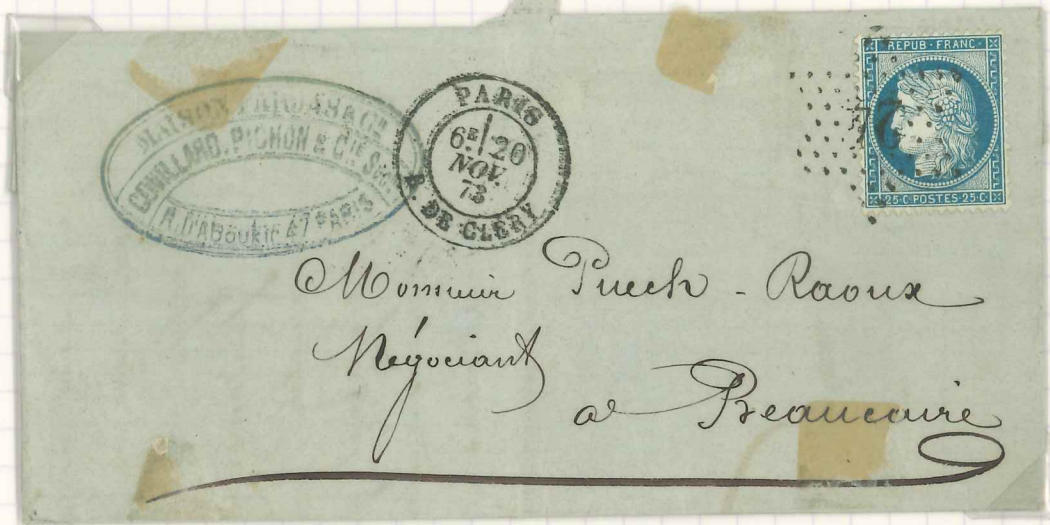 MAISON & Cie
PICHON & Cie Srs
R. D'ABOUKIR 47 PARIS
PARIS
6E 20
NOV.
73
R. DE CLERY
24
REPUB · FRANC ·
25 · C · POSTES · 25 · C ·
Monsieur Puech - Raoux
Négociant
a Beaucaire